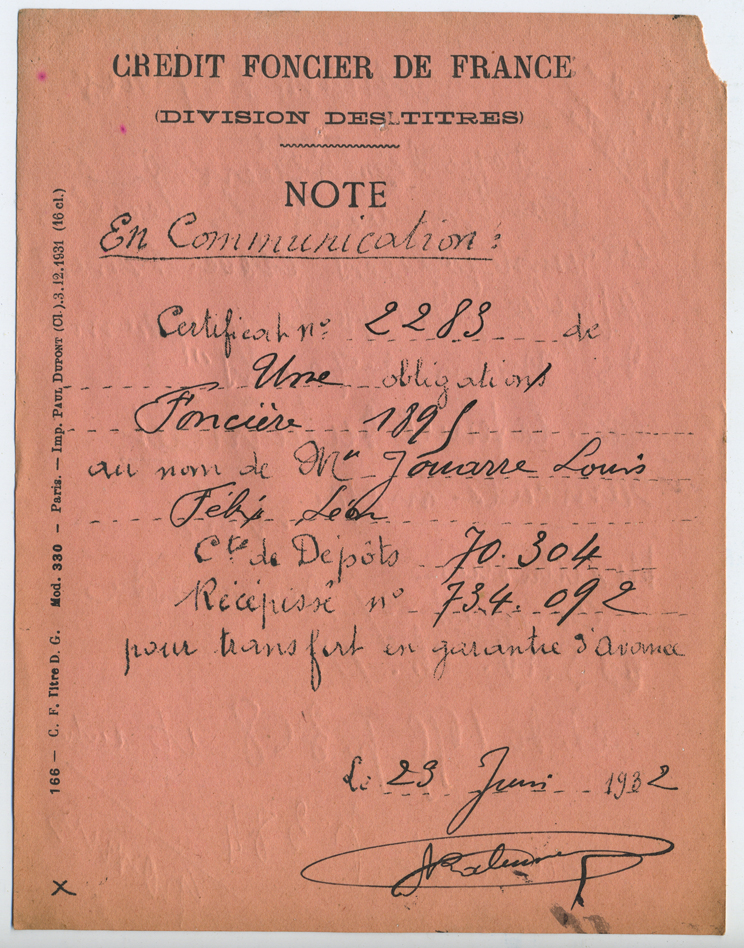 CREDIT FONCIER DE FRANCE
(DIVISION DES TITRES)
NOTE
En Communication:
Certificat n° 2283 de
Une obligations
Foncière 1895
au nom de Mr Jouarre Louis
Félix Léon
Cte de Dépôts 70.304
Récépissé n° 734.092
pour transfert en garantie d'avance
Le 23 Juin 1932
X
166 — C. F. Titre D. G. Mod. 330 — Paris. — Imp. PAUL DUPONT (Cl.).3.12.1931 (16 cl.)